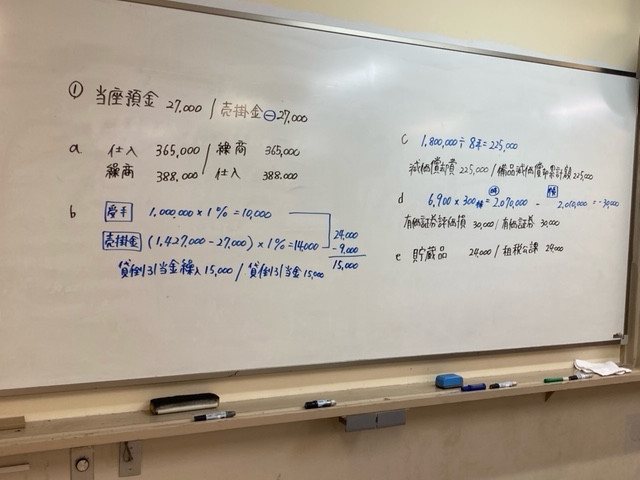 ① 当座預金 27,000 / 売掛金 ⊖ 27,000
a 仕入 365,000 / 繰商 365,000
繰商 388,000 / 仕入 388,000
b 受手 1,000,000×1%=10,000
売掛金 (1,427,000-27,000)×1%=14,000
24,000
-9,000
15,000
貸倒引当金繰入 15,000 / 貸倒引当金 15,000
c 1,800,000÷8年=225,000
減価償却費 225,000 / 備品減価償却累計額 225,000
d 6,900×300株=2,070,000 - 2,010,000=-30,000
有価証券評価損 30,000 / 有価証券 30,000
e 貯蔵品 24,000 / 租税公課 24,000